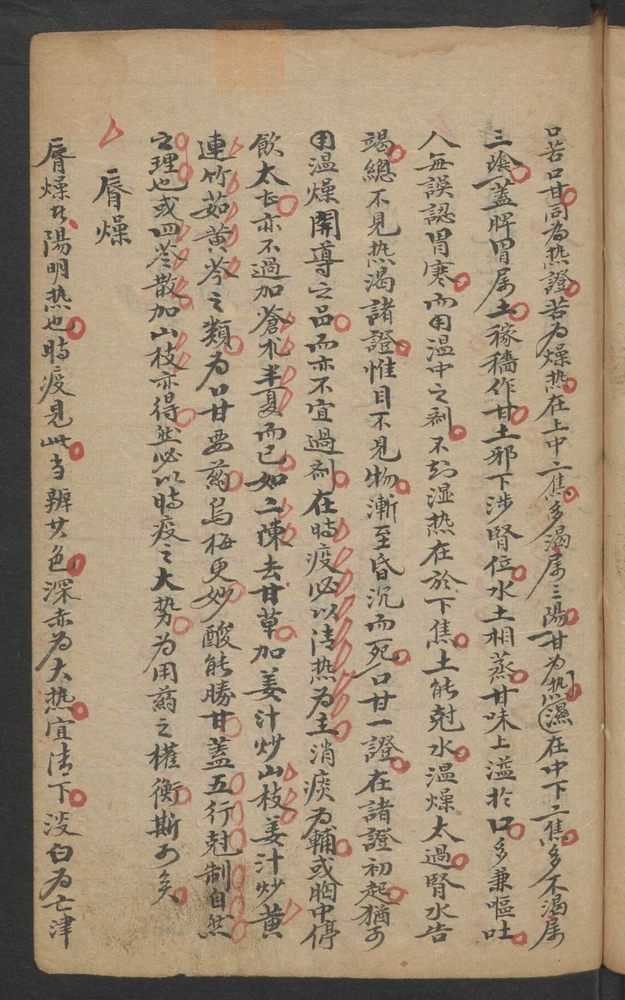 口苦口甘同為热證苦為燥热在上中二焦多渴属三陽甘為热濕在中下二焦多不渴属
三陰蓋脾胃属土稼穡作甘土邪下涉腎位水土相蒸甘味上溢扵口多兼嘔吐
人每誤認胃寒而用温中之剤不知湿热在於下焦土能尅水温燥太過腎水告
竭總不見热渴諸證惟目不見物漸至昏沉而死口甘一證在諸證初起猶可
用温燥開導之品而亦不宜過剤在時疫必以清热為主消痰為輔或胸中停
飲太甚亦不過加蒼朮半夏而已如二陳去甘草加姜汁炒山枝姜汁炒黄
連竹茹黄芩之類為口甘要药烏梅更妙酸能勝甘蓋五行尅制自然
之理也或四苓散加山枝亦得然必以時疫之大势為用藥之權衡斯可矣
唇燥
唇燥者陽明热也時疫見此當辨其色深赤為大热宜清下淡白為亡津